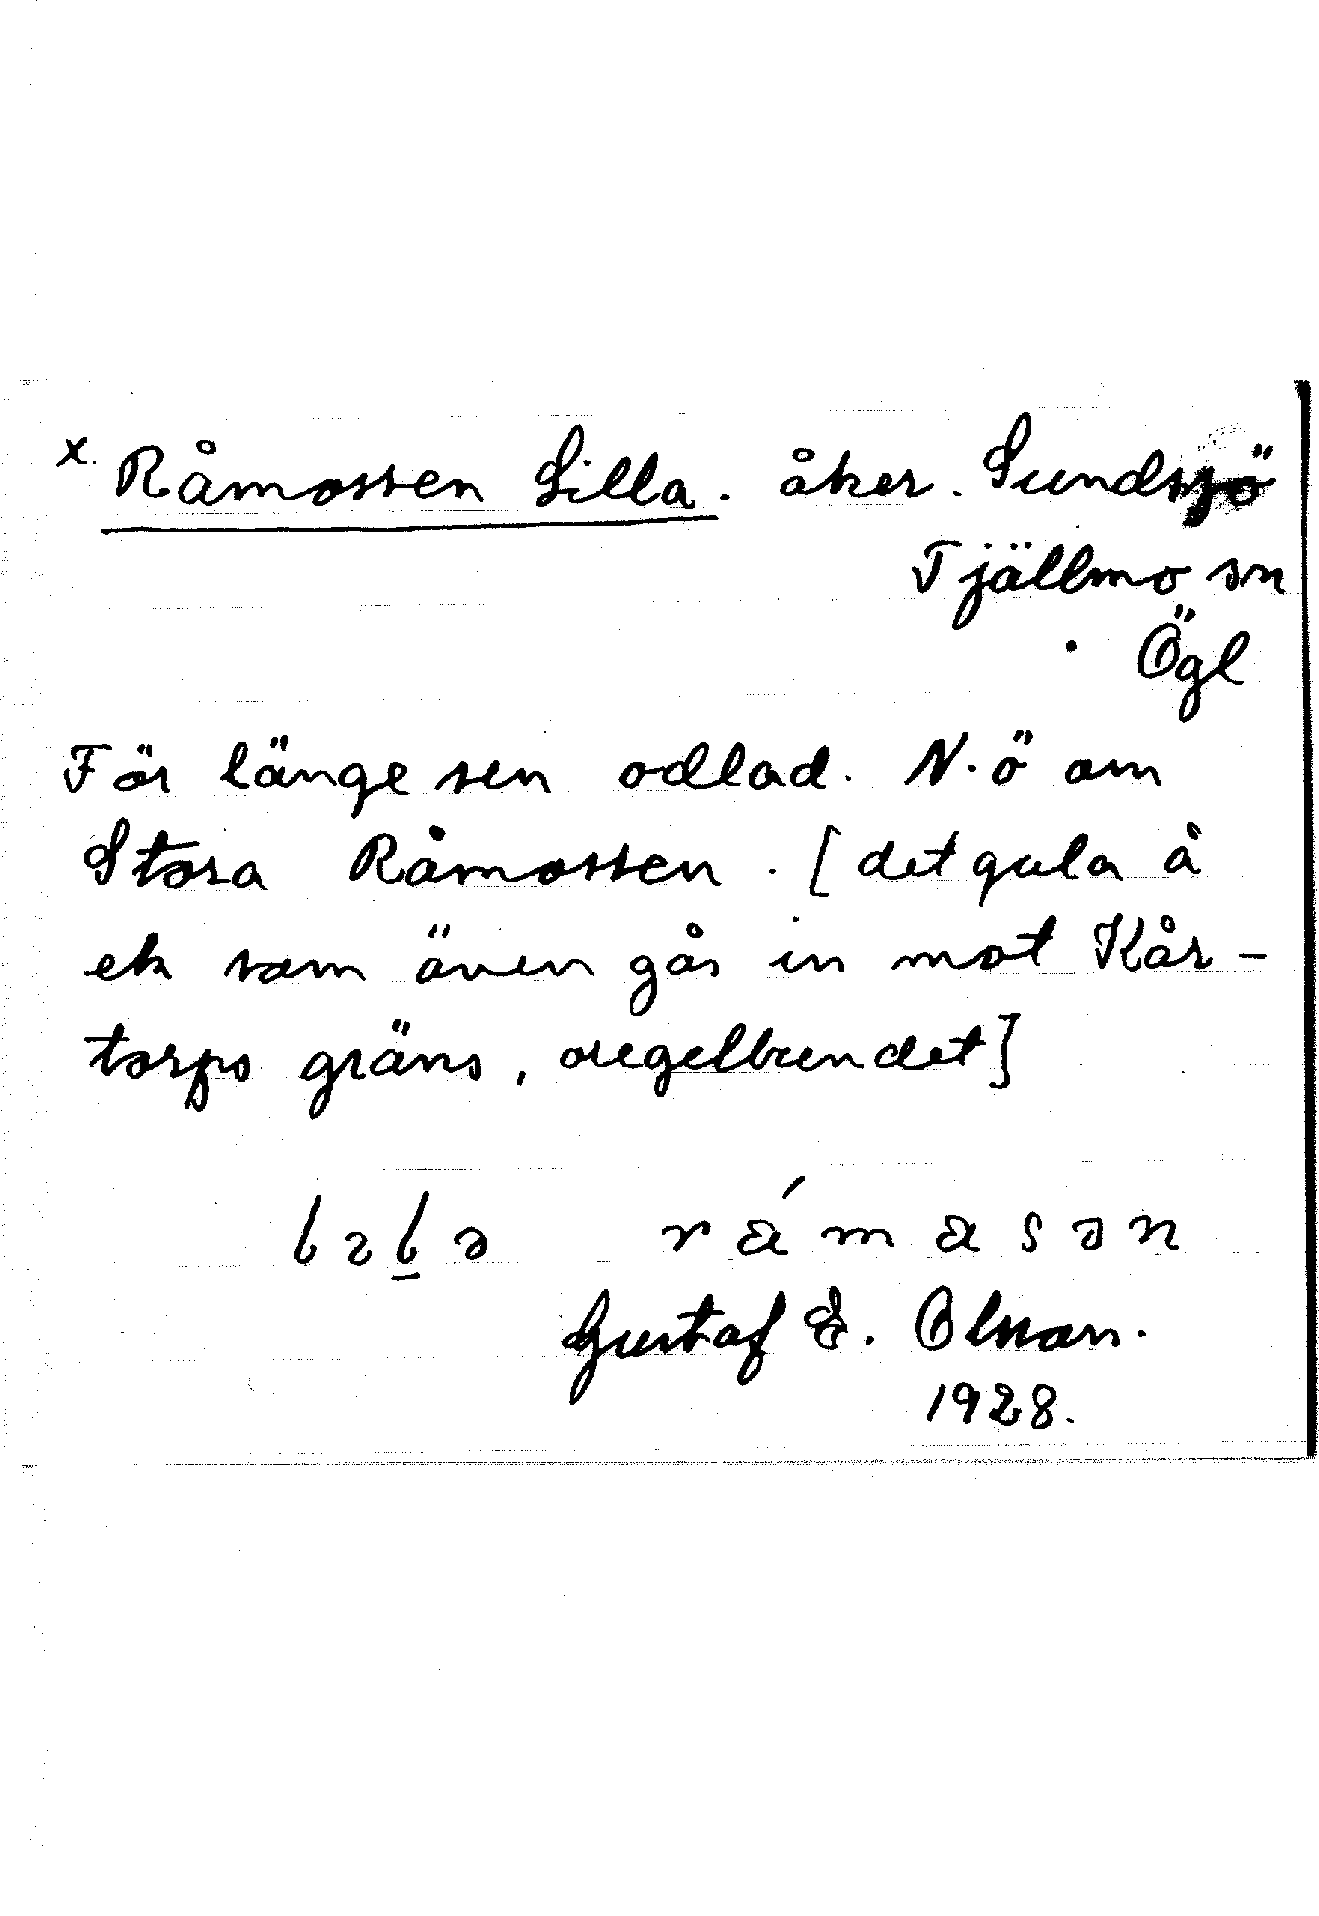 x. Råmossen Lilla. åker. Sundsjö
Tjällmo sn
Ögl
För länge sen odlad. N.ö om
Stora Råmossen. [det gula å
ek som även går in mot Kår-
torps gräns, oregelbundet]
lılə råmasən
Gustaf E. Olson.
1928.